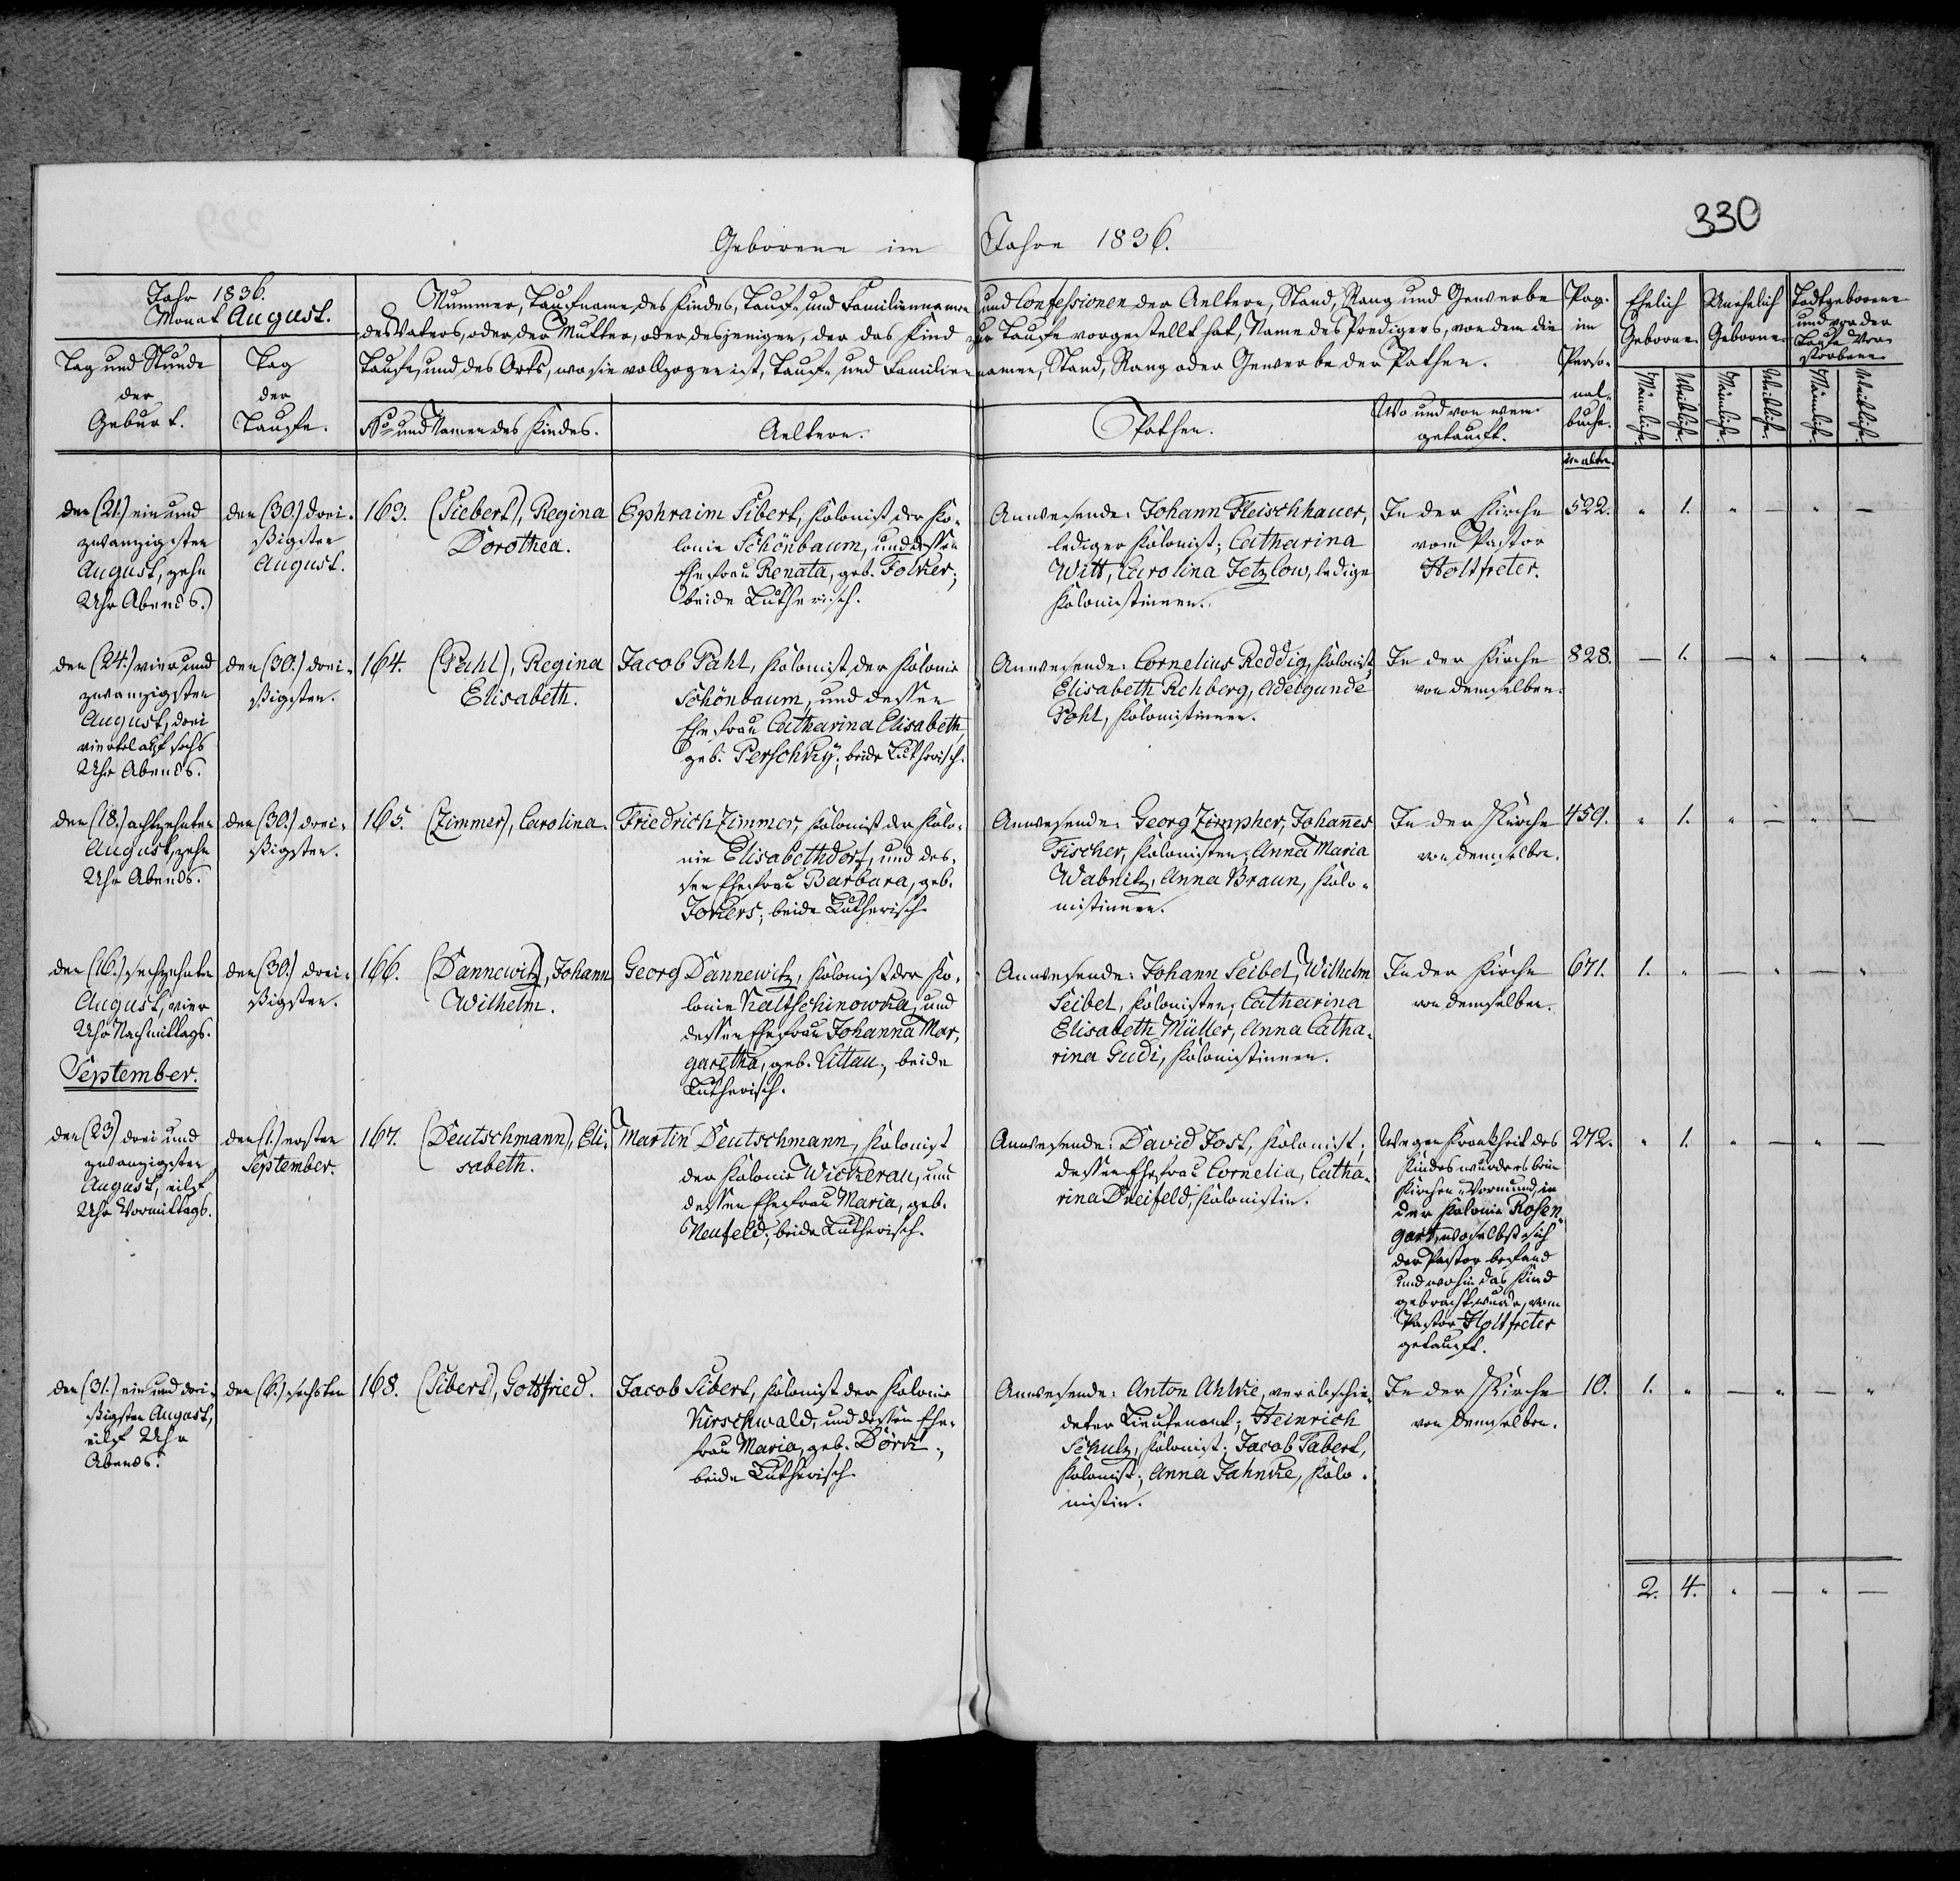 330
Geborene im Jahre 1836.
Jahr 1836.
Monat August.
Tag und Stunde
der
Geburt.
Tag
der
Taufe.
Nummer, Taufname des Kindes, Tauf- und Familienname und Confessionen der Aeltern, Stand, Rang und Gewerbe
des Vaters, oder der Mutter, oder desjenigen, der das Kind zur Taufe vorgestellt hat, Name des Predigers, von dem die
Taufe, und des Orts, wo sie vollzogen ist, Tauf- und Familiennamen, Stand, Rang oder Gewerbe der Pathen.
No und Namen des Kindes.
Aeltern.
Pathen.
Wo und von wem
getauft.
Pag.
im
Perso-
nal-
buche.
Ehelich
Geborne.
Unehelich
Geborne.
Todtgeborene
und vor der
Taufe Ver-
storbene.
Männliche.
Weibliche.
Männliche.
Weibliche.
Männliche.
Weibliche.
im alten.
den (21.) ein und
zwanzigsten
August, zehn
Uhr Abends.)
den (30.) drei-
ßigsten
August.
163. (Siebert), Regina
Dorothea.
Ephraim Sibert, Kolonist der Ko-
lonie Schönbaum, und dessen
Ehefrau Renata, geb. Folker;
beide Lutherisch.
Anwesende: Johann Fleischhauer,
lediger Kolonist; Catharina
Witt, Carolina Jetzlow, ledige
Kolonistinnen.
In der Kirche
vom Pastor
Holtfreter.
522. " 1. " — " —
den (24.) vier und
zwanzigsten
August, drei
viertel auf sechs
Uhr Abends.
den (30.) drei-
ßigsten.
164. (Pahl), Regina
Elisabeth.
Jacob Pahl, Kolonist der Kolonie
Schönbaum, und dessen
Ehefrau Catharina Elisabeth,
geb. Perschky; beide Lutherisch.
Anwesende: Cornelius Reddig, Kolonist,
Elisabeth Rehberg, Adelgunde
Pohl, Kolonistinnen.
In der Kirche
von demselben.
828. — 1. — " — "
den (18.) achtzehnten
August, zehn
Uhr Abends.
den (30.) drei-
ßigsten.
165. (Zimmer), Carolina.
Friedrich Zimmer, Kolonist der Kolo-
nie Elisabethdorf, und des-
sen Ehefrau Barbara, geb.
Jokers; beide Lutherisch
Anwesende: Georg Zimpher, Johannes
Fischer, Kolonisten; Anna Maria
Wabnitz, Anna Braun, Kolo-
nistinnen.
In der Kirche
von demselben.
459. " 1. " — " —
den (16.) sechzehnten
August, vier
Uhr Nachmittags.
den (30.) drei-
ßigsten.
166. (Dannewitz), Johann
Wilhelm.
Georg Dannewitz, Kolonist der Ko-
lonie Kaltschinowka, und
dessen Ehefrau Johanna Mar-
garetha, geb. Littau; beide
Lutherisch.
Anwesende: Johann Seibel, Wilhelm
Seibel, Kolonisten; Catharina
Elisabeth Müller, Anna Catha-
rina Gudi, Kolonistinnen.
In der Kirche
von demselben.
671. 1. " — " — "
September.
den (23) drei und
zwanzigsten
August, eilf
Uhr Vormittags.
den (1.) ersten
September.
167. (Deutschmann), Eli-
sabeth.
Martin Deutschmann, Kolonist
der Kolonie Wickerau, und
dessen Ehefrau Maria, geb.
Neufeld; beide Lutherisch.
Anwesende: David Jost, Kolonist;
dessen Ehefrau Cornelia, Catha-
rina Dreifeld, Kolonistin.
Wegen Krankheit des
Kindes wurde es beim
Kirchen-Vormund, in
der Kolonie Rosen-
gart, woselbst sich
der Pastor befand
und wohin das Kind
gebracht wurde, vom
Pastor Holtfreter
getauft.
272. " 1. " — " —
den (31.) ein und drei-
ßigsten August,
eilf Uhr
Abends.
den (6.) sechsten
168. (Sibert), Gottfried.
Jacob Sibert, Kolonist der Kolonie
Kirschwald, und dessen Ehe-
frau Maria, geb. Dörk;
beide Lutherisch.
Anwesende: Anton Ahlke, verabschie-
deter Lieutenant; Heinrich
Schulz, Kolonist; Jacob Tabert,
Kolonist; Anna Jahnke, Kolo-
nistin.
In der Kirche
von demselben.
10. 1. " — " — "
2. 4. " — " —